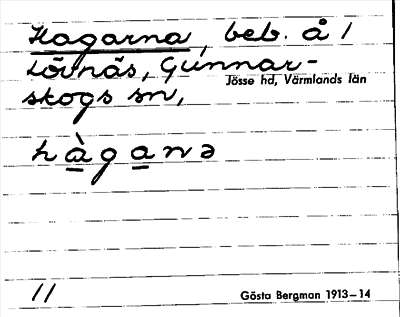 Hagarna, beb. å 1
Lövnäs, Gunnar-
skogs sn,
Jösse hd, Värmlands län
hàganə
11
Gösta Bergman 1913–14